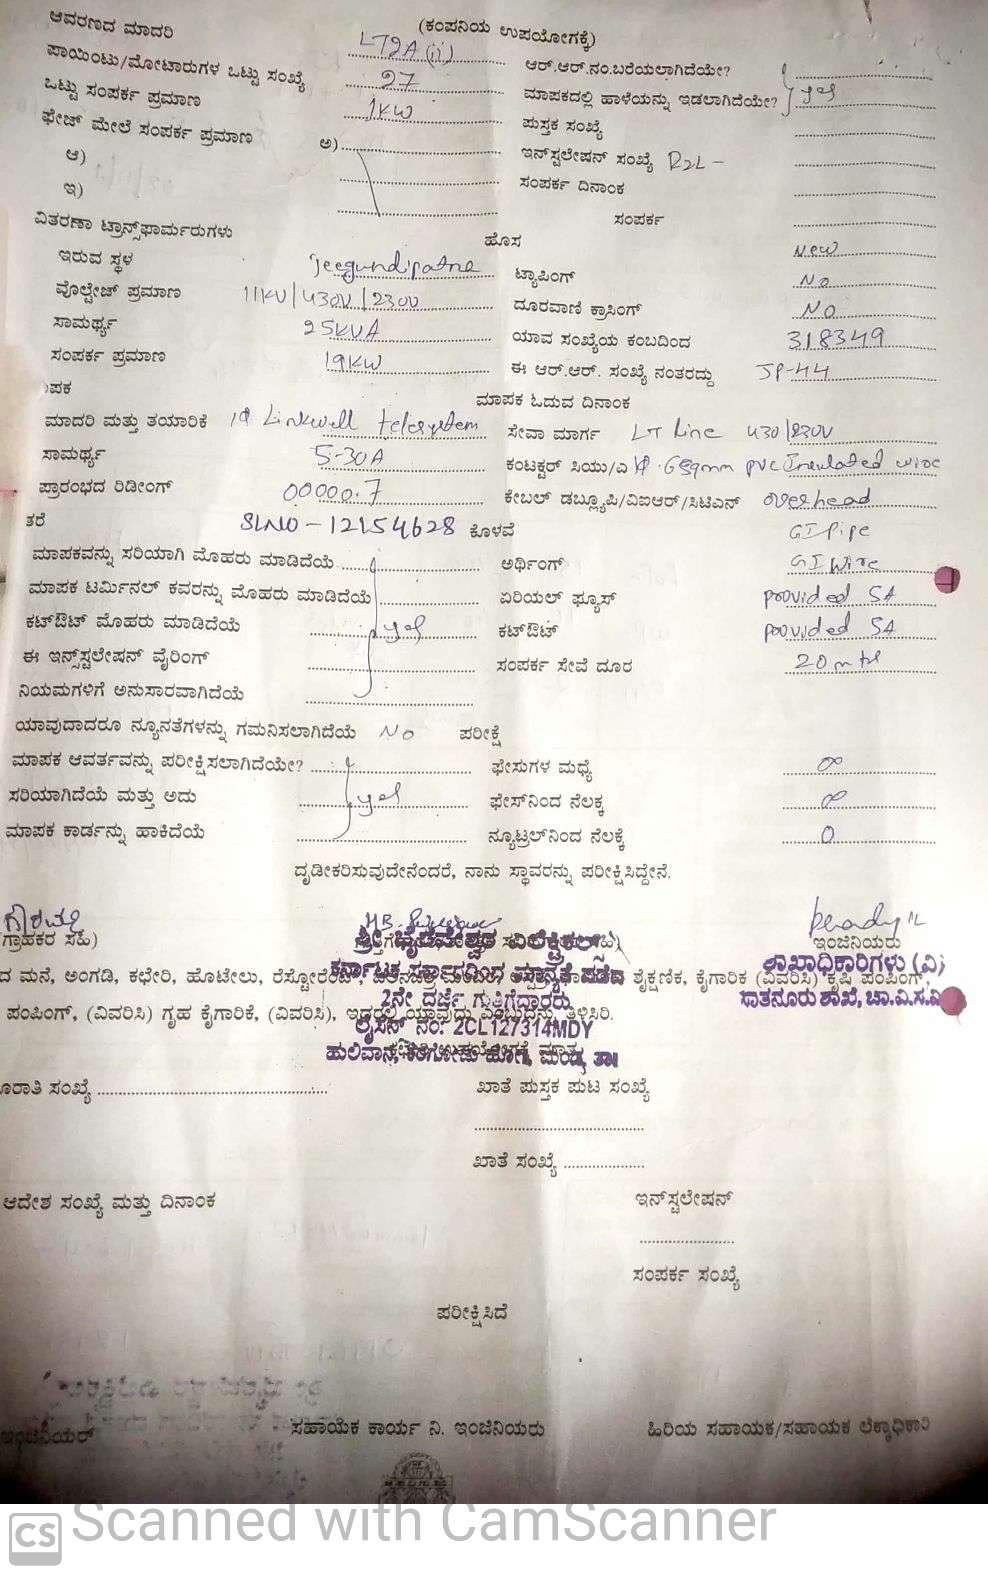 (ಕಂಪನಿಯ ಉಪಯೋಗಕ್ಕೆ)
ಆವರಣದ ಮಾದರಿ LT2A (ii) ಆರ್.ಆರ್.ನಂ.ಬರೆಯಲಾಗಿದೆಯೇ?
ಪಾಯಿಂಟು/ಮೋಟಾರುಗಳ ಒಟ್ಟು ಸಂಖ್ಯೆ 27 ಮಾಪಕದಲ್ಲಿ ಹಾಳೆಯನ್ನು ಇಡಲಾಗಿದೆಯೇ? yes
ಒಟ್ಟು ಸಂಪರ್ಕ ಪ್ರಮಾಣ 1KW ಪುಸ್ತಕ ಸಂಖ್ಯೆ
ಫೇಜ್ ಮೇಲೆ ಸಂಪರ್ಕ ಪ್ರಮಾಣ ಅ) ಇನ್‌ಸ್ಟಲೇಷನ್ ಸಂಖ್ಯೆ R2L -
ಆ) ಸಂಪರ್ಕ ದಿನಾಂಕ
ಇ) ಸಂಪರ್ಕ
ವಿತರಣಾ ಟ್ರಾನ್ಸ್‌ಫಾರ್ಮರುಗಳು ಹೊಸ New
ಇರುವ ಸ್ಥಳ Jeegundipatna ಟ್ಯಾಪಿಂಗ್ No
ವೊಲ್ಟೇಜ್ ಪ್ರಮಾಣ 11KV/430V/230V ದೂರವಾಣಿ ಕ್ರಾಸಿಂಗ್ No
ಸಾಮರ್ಥ್ಯ 25KVA ಯಾವ ಸಂಖ್ಯೆಯ ಕಂಬದಿಂದ 318349
ಸಂಪರ್ಕ ಪ್ರಮಾಣ 19KW ಈ ಆರ್.ಆರ್. ಸಂಖ್ಯೆ ನಂತರದ್ದು JP-44
ಾಪಕ ಮಾಪಕ ಓದುವ ದಿನಾಂಕ
ಮಾದರಿ ಮತ್ತು ತಯಾರಿಕೆ 1φ Linkwell telesystem ಸೇವಾ ಮಾರ್ಗ LT Line 430/230V
ಸಾಮರ್ಥ್ಯ 5-30A ಕಂಟಕ್ಟರ್ ಸಿಯು/ಎ pvc Insulated wire
ಪ್ರಾರಂಭದ ರಿಡೀಂಗ್ 00000.7 ಕೇಬಲ್ ಡಬ್ಲ್ಯೂಪಿ/ವಿಐಆರ್/ಸಿಟಿಎನ್ overhead
ತರೆ SLNO-12154628 ಕೊಳವೆ GI Pipe
ಮಾಪಕವನ್ನು ಸರಿಯಾಗಿ ಮೊಹರು ಮಾಡಿದೆಯೆ ಅರ್ಥಿಂಗ್ GI Wire
ಮಾಪಕ ಟರ್ಮಿನಲ್ ಕವರನ್ನು ಮೊಹರು ಮಾಡಿದೆಯೆ ಏರಿಯಲ್ ಫ್ಯೂಸ್ provided 5A
ಕಟ್‌ಔಟ್ ಮೊಹರು ಮಾಡಿದೆಯೆ yes ಕಟ್‌ಔಟ್ provided 5A
ಈ ಇನ್ಸ್‌ಸ್ಟಲೇಷನ್ ವೈರಿಂಗ್ ಸಂಪರ್ಕ ಸೇವೆ ದೂರ 20 mts
ನಿಯಮಗಳಿಗೆ ಅನುಸಾರವಾಗಿದೆಯೆ
ಯಾವುದಾದರೂ ನ್ಯೂನತೆಗಳನ್ನು ಗಮನಿಸಲಾಗಿದೆಯೆ No ಪರೀಕ್ಷೆ
ಮಾಪಕ ಆವರ್ತವನ್ನು ಪರೀಕ್ಷಿಸಲಾಗಿದೆಯೇ? ಫೇಸುಗಳ ಮಧ್ಯೆ ∞
ಸರಿಯಾಗಿದೆಯೆ ಮತ್ತು ಅದು yes ಫೇಸ್‌ನಿಂದ ನೆಲಕ್ಕೆ ∞
ಮಾಪಕ ಕಾರ್ಡನ್ನು ಹಾಕಿದೆಯೆ ನ್ಯೂಟ್ರಲ್‌ನಿಂದ ನೆಲಕ್ಕೆ 0
ದೃಡೀಕರಿಸುವುದೇನೆಂದರೆ, ನಾನು ಸ್ಥಾವರನ್ನು ಪರೀಕ್ಷಿಸಿದ್ದೇನೆ.
ಗ್ರಾಹಕರ ಸಹಿ) ಶ್ರೀ ಭೈರವೇಶ್ವರ ಎಲೆಕ್ಟ್ರಿಕಲ್ಸ್ ಇಂಜಿನಿಯರು
ಕರ್ನಾಟಕ ಸರ್ಕಾರದಿಂದ ಮಾನ್ಯತೆ ಪಡೆದ ಶಾಖಾಧಿಕಾರಿಗಳು (ವಿ)
ದ ಮನೆ, ಅಂಗಡಿ, ಕಛೇರಿ, ಹೊಟೇಲು, ಶೈಕ್ಷಣಿಕ, ಕೈಗಾರಿಕ (ವಿವರಿಸಿ) ಕೃಷಿ ಪಂಪಿಂಗ್,
2ನೇ ದರ್ಜೆ ಗುತ್ತಿಗೆದ್ದಾರರು ಸಾತನೂರು ಶಾಖೆ, ಚಾ.ವಿ.ಸ.ನಿ
ಪಂಪಿಂಗ್, (ವಿವರಿಸಿ) ಗೃಹ ಕೈಗಾರಿಕೆ, (ವಿವರಿಸಿ), ಇದರಲ್ಲಿ ಯಾವುದು ಎಂಬುದನ್ನು ತಿಳಿಸಿರಿ.
ಲೈಸೆನ್ಸ್ ನಂ: 2CL127314MDY
ಹುಲಿವಾನ, ಕೆರಗೋಡು ಹೋ|, ಮಂಡ್ಯ ತಾ||
ೂರಾತಿ ಸಂಖ್ಯೆ ಖಾತೆ ಪುಸ್ತಕ ಪುಟ ಸಂಖ್ಯೆ
ಖಾತೆ ಸಂಖ್ಯೆ
ಆದೇಶ ಸಂಖ್ಯೆ ಮತ್ತು ದಿನಾಂಕ ಇನ್‌ಸ್ಟಲೇಷನ್
ಸಂಪರ್ಕ ಸಂಖ್ಯೆ
ಪರೀಕ್ಷಿಸಿದೆ
ಇಂಜಿನಿಯರ್ ಸಹಾಯಕ ಕಾರ್ಯ ನಿ. ಇಂಜಿನಿಯರು ಹಿರಿಯ ಸಹಾಯಕ/ಸಹಾಯಕ ಲೆಕ್ಕಾಧಿಕಾರಿ
CS Scanned with CamScanner